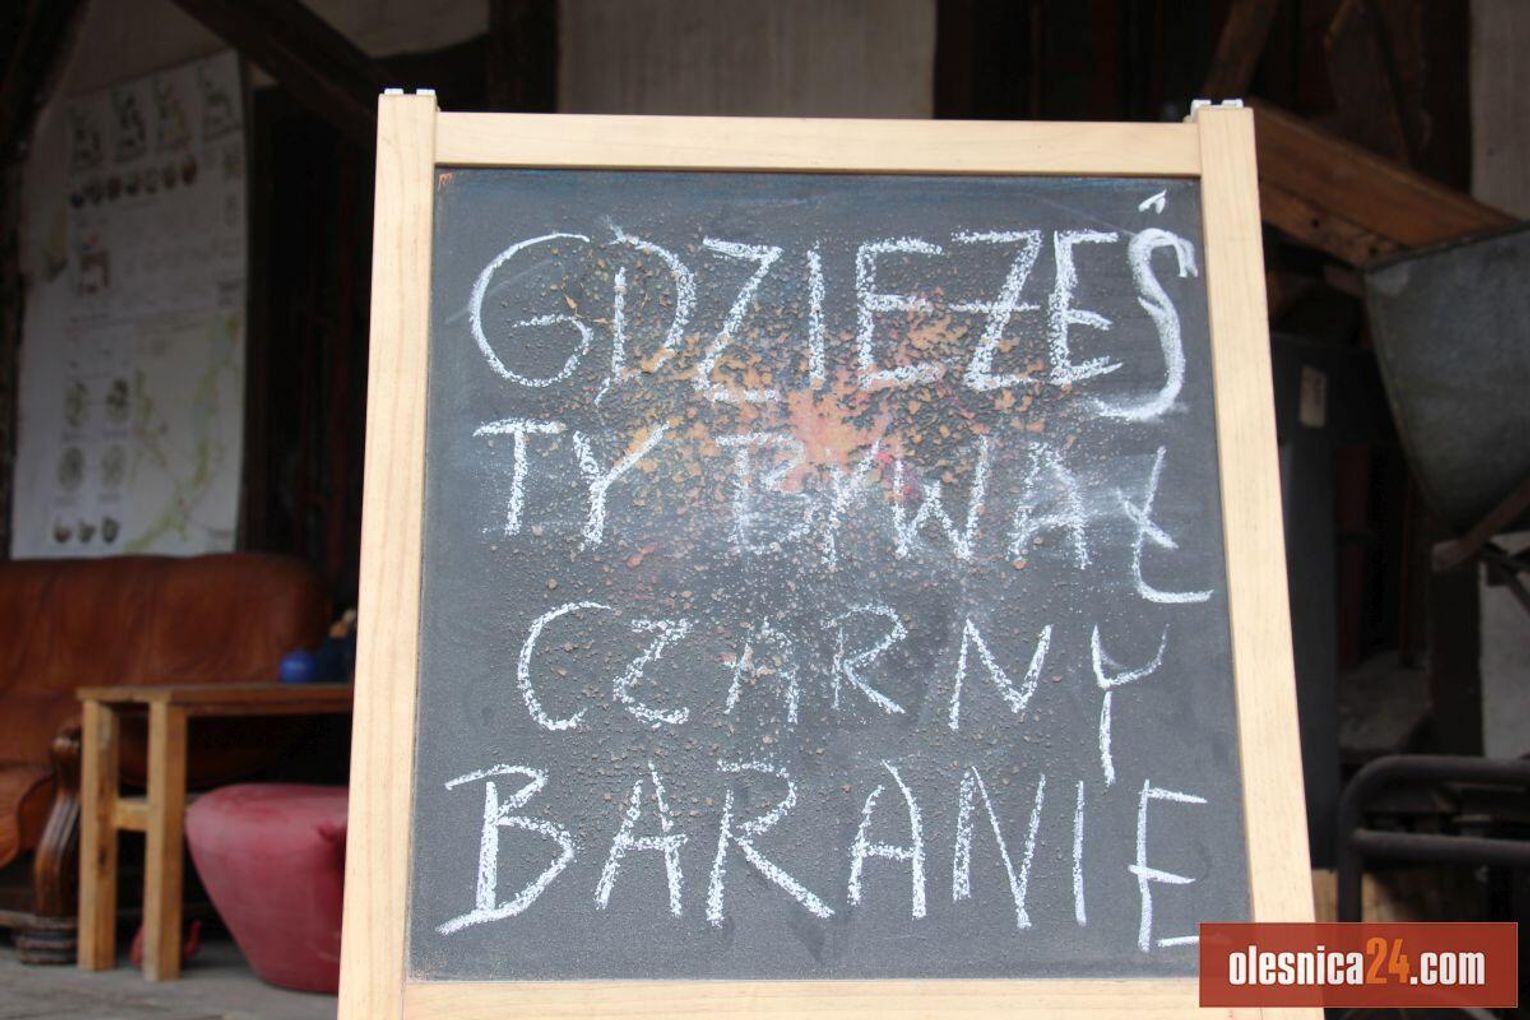 GDZIEŻEŚ
TY BYWAŁ
CZARNY
BARANIE
olesnica24.com